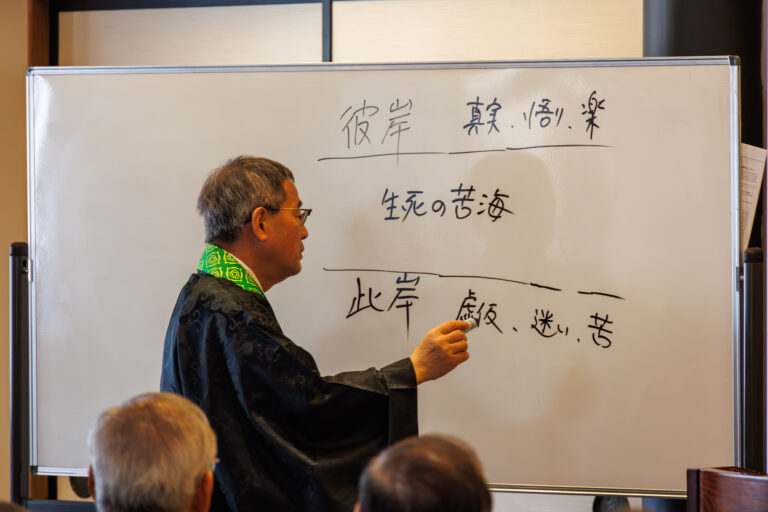 彼岸 真実、悟り、楽
生死の苦海
此岸 虚仮、迷い、苦